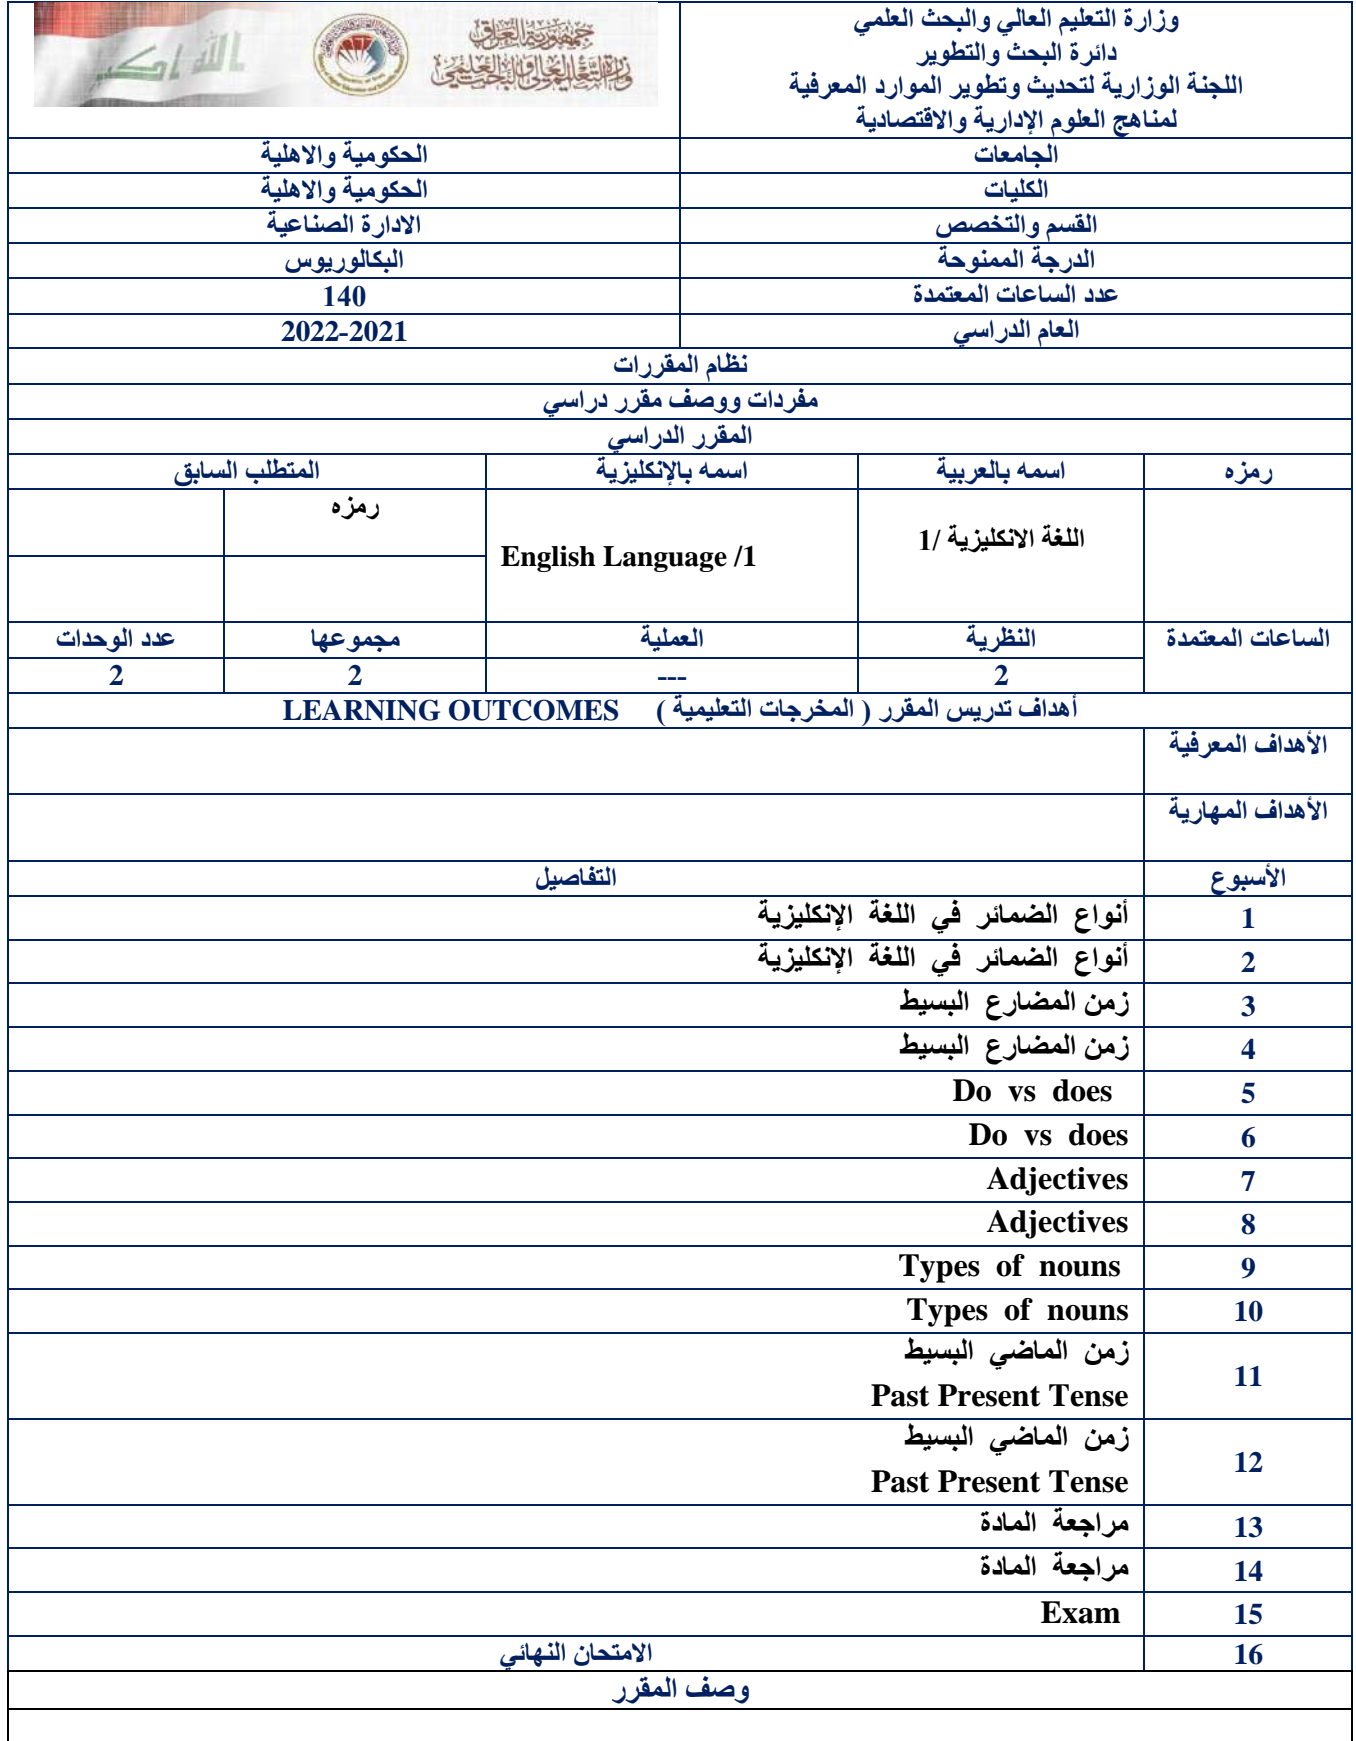 وزارة التعليم العالي والبحث العلمي
دائرة البحث والتطوير
اللجنة الوزارية لتحديث وتطوير الموارد المعرفية
لمناهج العلوم الإدارية والاقتصادية
الله اكبر
جمهورية العراق
وزارة التعليم العالي والبحث العلمي
الجامعات الحكومية والاهلية
الكليات الحكومية والاهلية
القسم والتخصص الادارة الصناعية
الدرجة الممنوحة البكالوريوس
عدد الساعات المعتمدة 140
العام الدراسي 2022-2021
نظام المقررات
مفردات ووصف مقرر دراسي
المقرر الدراسي
رمزه اسمه بالعربية اسمه بالإنكليزية المتطلب السابق
رمزه
اللغة الانكليزية /1
English Language /1
الساعات المعتمدة النظرية العملية مجموعها عدد الوحدات
2 --- 2 2
أهداف تدريس المقرر ( المخرجات التعليمية ) LEARNING OUTCOMES
الأهداف المعرفية
الأهداف المهارية
الأسبوع التفاصيل
1 أنواع الضمائر في اللغة الإنكليزية
2 أنواع الضمائر في اللغة الإنكليزية
3 زمن المضارع البسيط
4 زمن المضارع البسيط
5 Do vs does
6 Do vs does
7 Adjectives
8 Adjectives
9 Types of nouns
10 Types of nouns
زمن الماضي البسيط
11
Past Present Tense
زمن الماضي البسيط
12
Past Present Tense
13 مراجعة المادة
14 مراجعة المادة
15 Exam
16 الامتحان النهائي
وصف المقرر